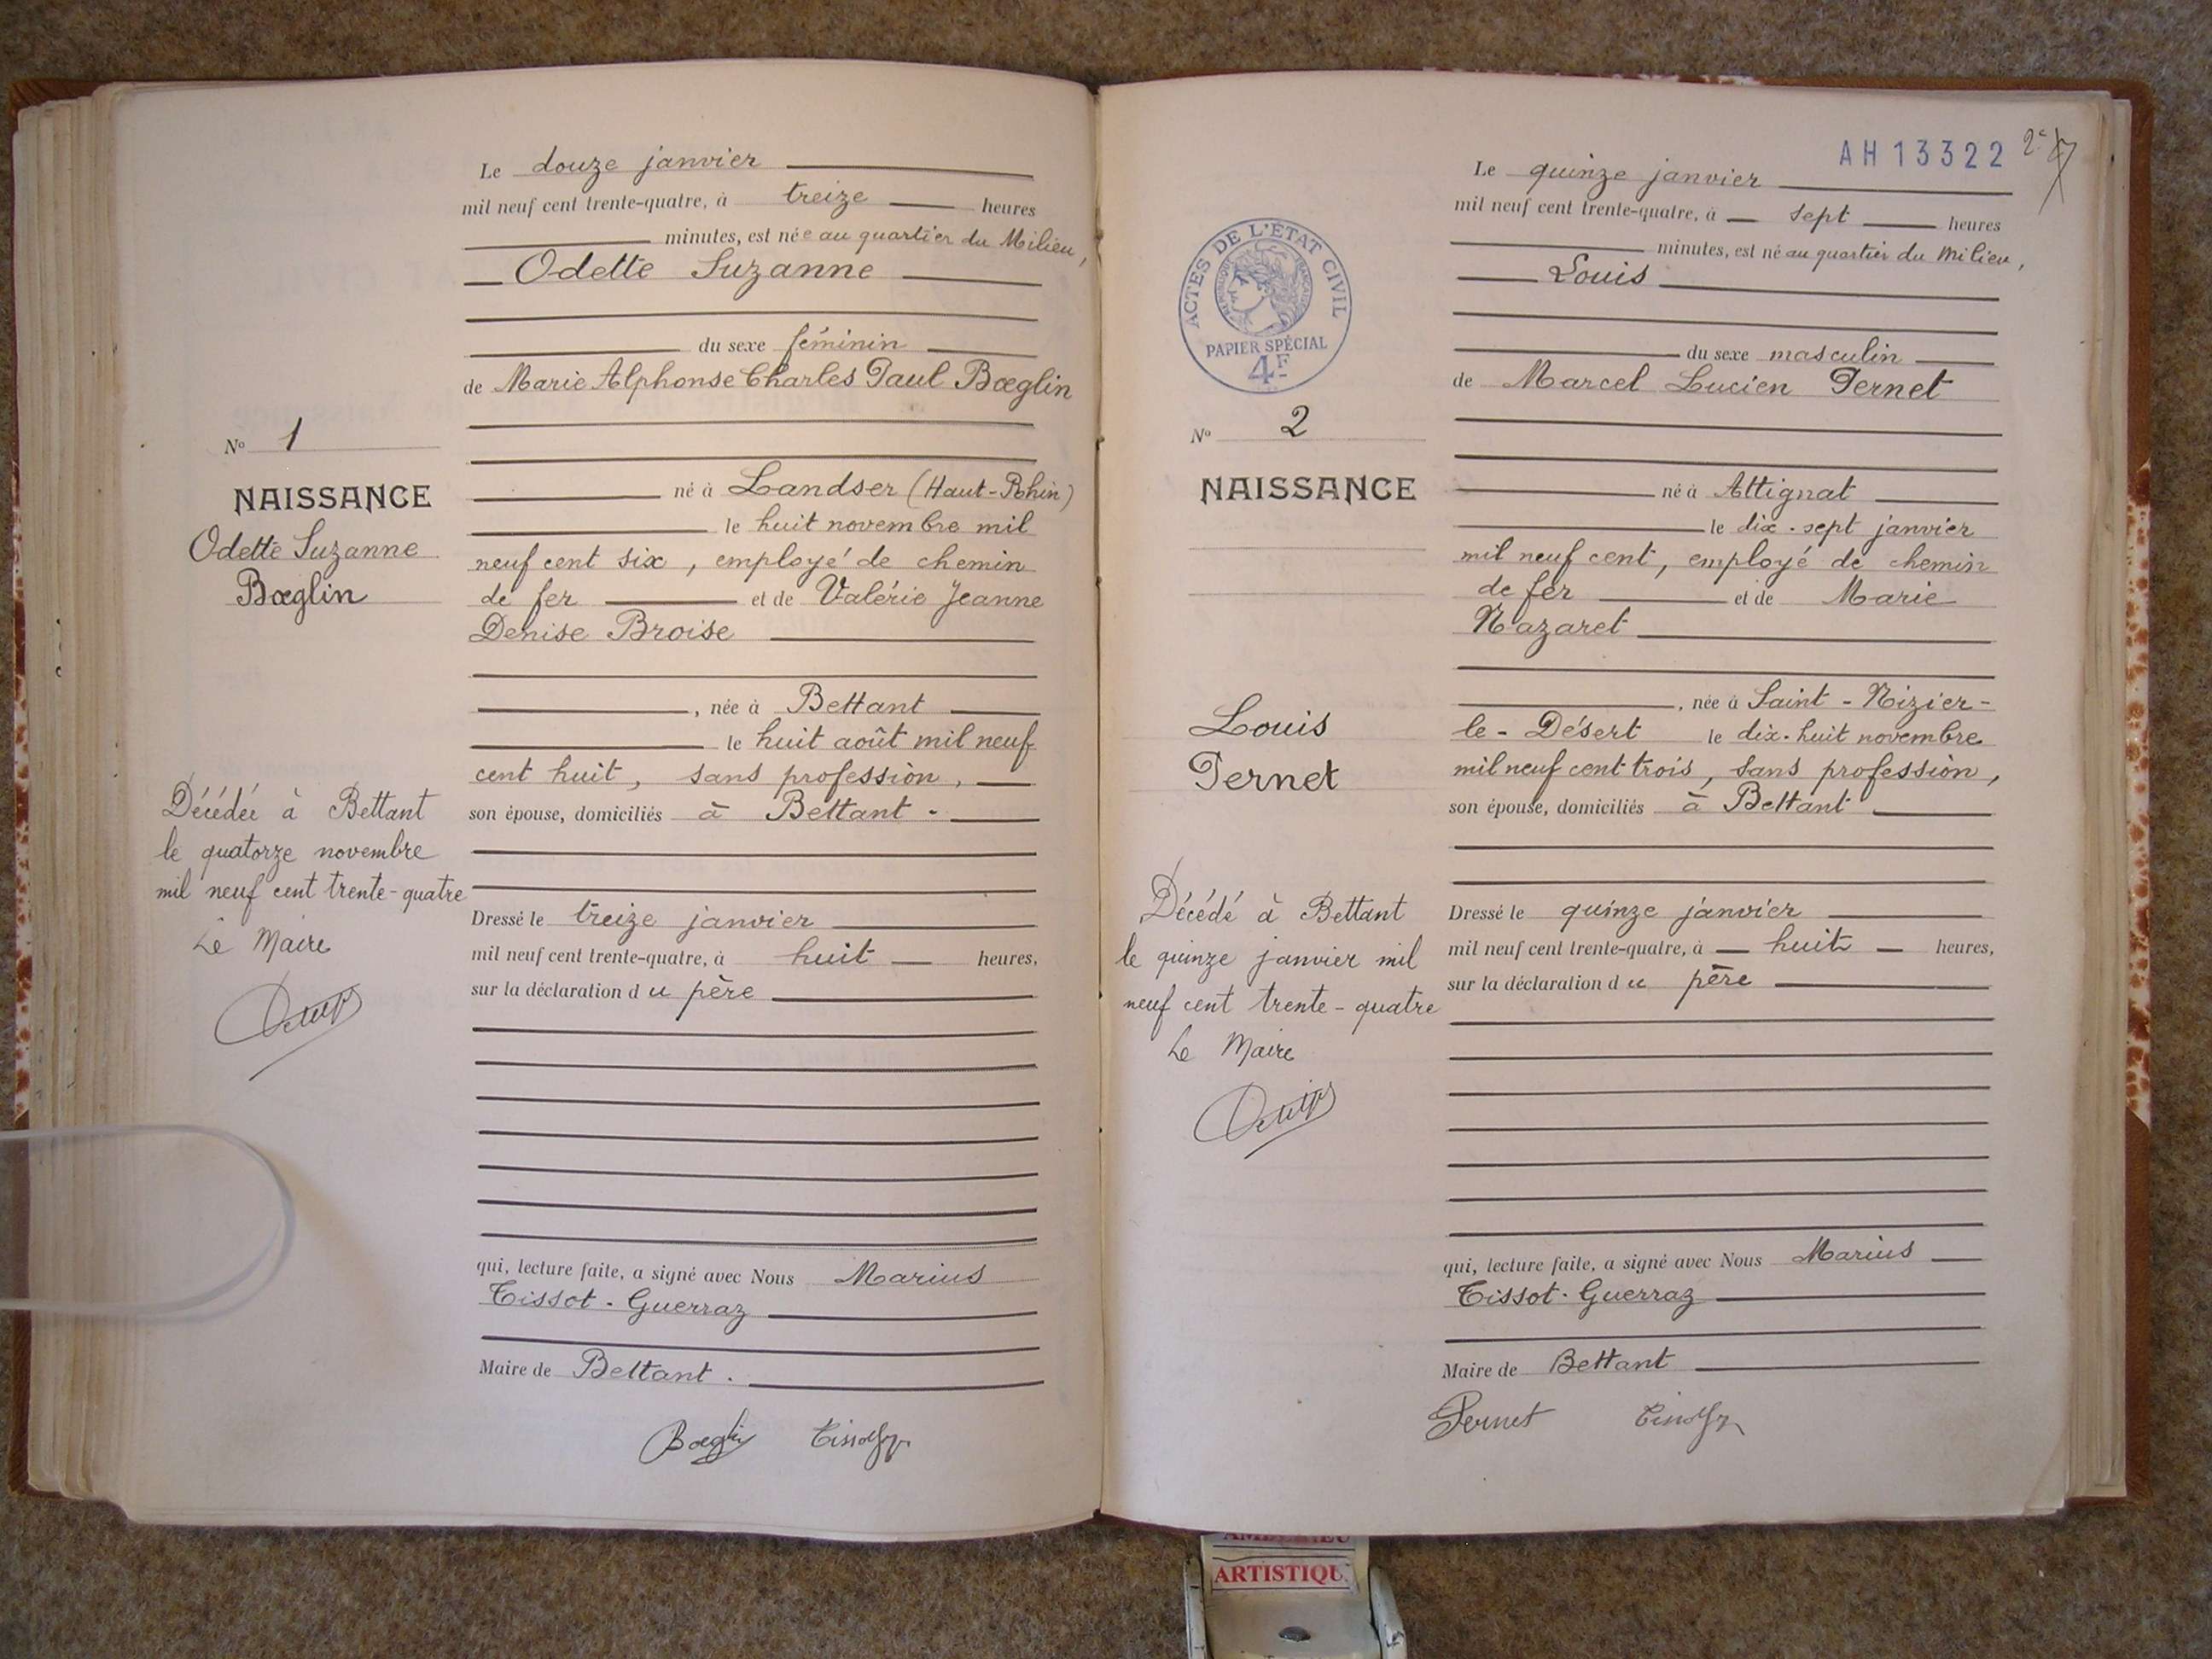 Le douze janvier
mil neuf cent trente-quatre, à treize heures
minutes, est née au quartier du Milieu,
Odette Suzanne
du sexe féminin
de Marie Alphonse Charles Paul Bœglin
né à Landser (Haut-Rhin)
le huit novembre mil
neuf cent six, employé de chemin
de fer et de Valérie Jeanne
Denise Broise
, née à Bettant
le huit août mil neuf
cent huit, sans profession,
son épouse, domiciliés à Bettant -
Dressé le treize janvier
mil neuf cent trente-quatre, à huit heures,
sur la déclaration du père
qui, lecture faite, a signé avec Nous Marius
Tissot-Guerraz
Maire de Bettant.
Bœglin
Nº 1
NAISSANCE
Odette Suzanne
Bœglin
Décédée à Bettant
le quatorze novembre
mil neuf cent trente-quatre
Le Maire
AH 13322
2e
Le quinze janvier
mil neuf cent trente-quatre, à sept heures
minutes, est né au quartier du Milieu,
Louis
du sexe masculin
de Marcel Lucien Pernet
né à Attignat
le dix-sept janvier
mil neuf cent, employé de chemin
de fer et de Marie
Nazaret
, née à Saint-Nizier-
le-Désert le dix-huit novembre
mil neuf cent trois, sans profession,
son épouse, domiciliés à Bettant
Dressé le quinze janvier
mil neuf cent trente-quatre, à huit heures,
sur la déclaration du père
qui, lecture faite, a signé avec Nous Marius
Tissot-Guerraz
Maire de Bettant
Pernet
ACTES DE L'ÉTAT CIVIL
RÉPUBLIQUE FRANÇAISE
PAPIER SPÉCIAL
4F
Nº 2
NAISSANCE
Louis
Pernet
Décédé à Bettant
le quinze janvier mil
neuf cent trente-quatre
Le Maire
ARTISTIQU